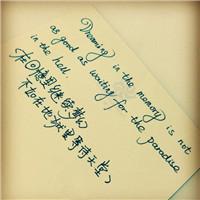 Dreaming in the memory is not
as good as waiting for the paradise
in the hell.
在回憶里继续梦幻
不如在地獄里等待天堂